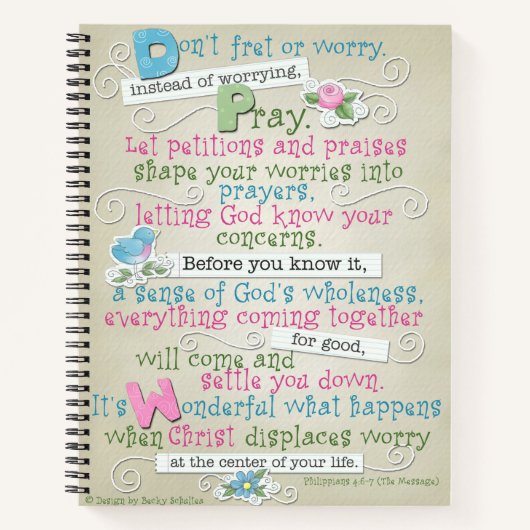 Don't fret or worry.
instead of worrying,
Pray.
Let petitions and praises
shape your worries into
prayers,
letting God know your
concerns.
Before you know it,
a sense of God's wholeness,
everything coming together
for good,
will come and
settle you down.
It's Wonderful what happens
when Christ displaces worry
at the center of your life.
Philippians 4:6-7 (The Message)
© Design by Becky Scheltes